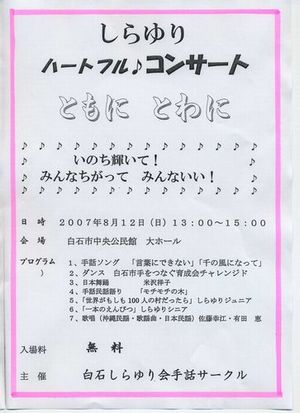 しらゆり
ハートフル♪コンサート
ともに とわに
♪ ♪ ♪ ♪ ♪ ♪ ♪ ♪ ♪ ♪ ♪ ♪ ♪
♪ いのち輝いて! ♪
♪ みんなちがって みんないい! ♪
♪ ♪ ♪ ♪ ♪ ♪ ♪ ♪ ♪ ♪ ♪ ♪ ♪
日 時 2007年8月12日(日)13:00~15:00
会 場 白石市中央公民館 大ホール
プログラム) 1、手話ソング 「言葉にできない」「千の風になって」
2、ダンス 白石市手をつなぐ育成会チャレンジド
3、日本舞踊 米沢洋子
4、手話民話語り 「モチモチの木」
5、「世界がもしも100人の村だったら」しらゆりジュニア
6、「一本のえんぴつ」しらゆりシニア
7、歌唱(沖縄民謡・歌謡曲・日本民謡)佐藤幸江・有田 恵
入場料 無 料
主 催 白石しらゆり会手話サークル